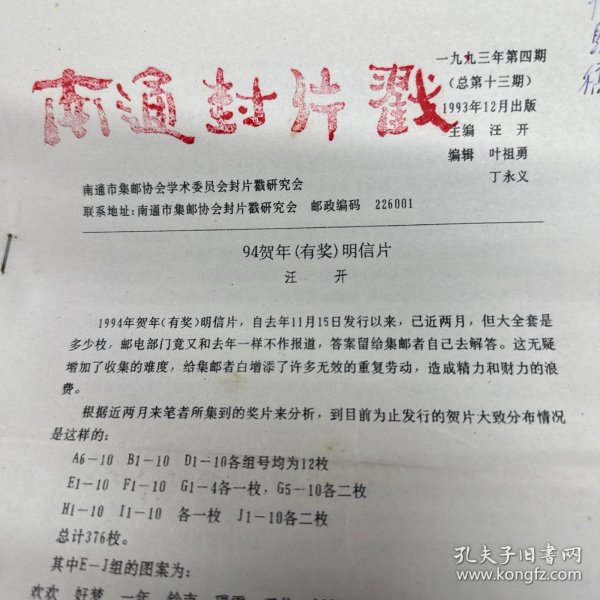 一九九三年第四期
南通封片戳
(总第十三期)
1993年12月出版
主编 汪 开
编辑 叶祖勇
丁永义
南通市集邮协会学术委员会封片戳研究会
联系地址:南通市集邮协会封片戳研究会 邮政编码 226001
94贺年(有奖)明信片
汪 开
1994年贺年(有奖)明信片,自去年11月15日发行以来,己近两月,但大全套是
多少枚,邮电部门竟又和去年一样不作报道,答案留给集邮者自己去解答。这无疑
增加了收集的难度,给集邮者白增添了许多无效的重复劳动,造成精力和财力的浪
费。
根据近两月来笔者所集到的奖片来分析,到目前为止发行的贺片大致分布情况
是这样的:
A6-10 B1-10 D1-10各组号均为12枚
E1-10 F1-10 G1-4各一枚,G5-10各二枚
H1-10 I1-10 各一枚 J1-10各二枚
总计376枚。
其中E-J组的图案为:
欢欢 好梦 一年
孔夫子旧书网
www.kongfz.com